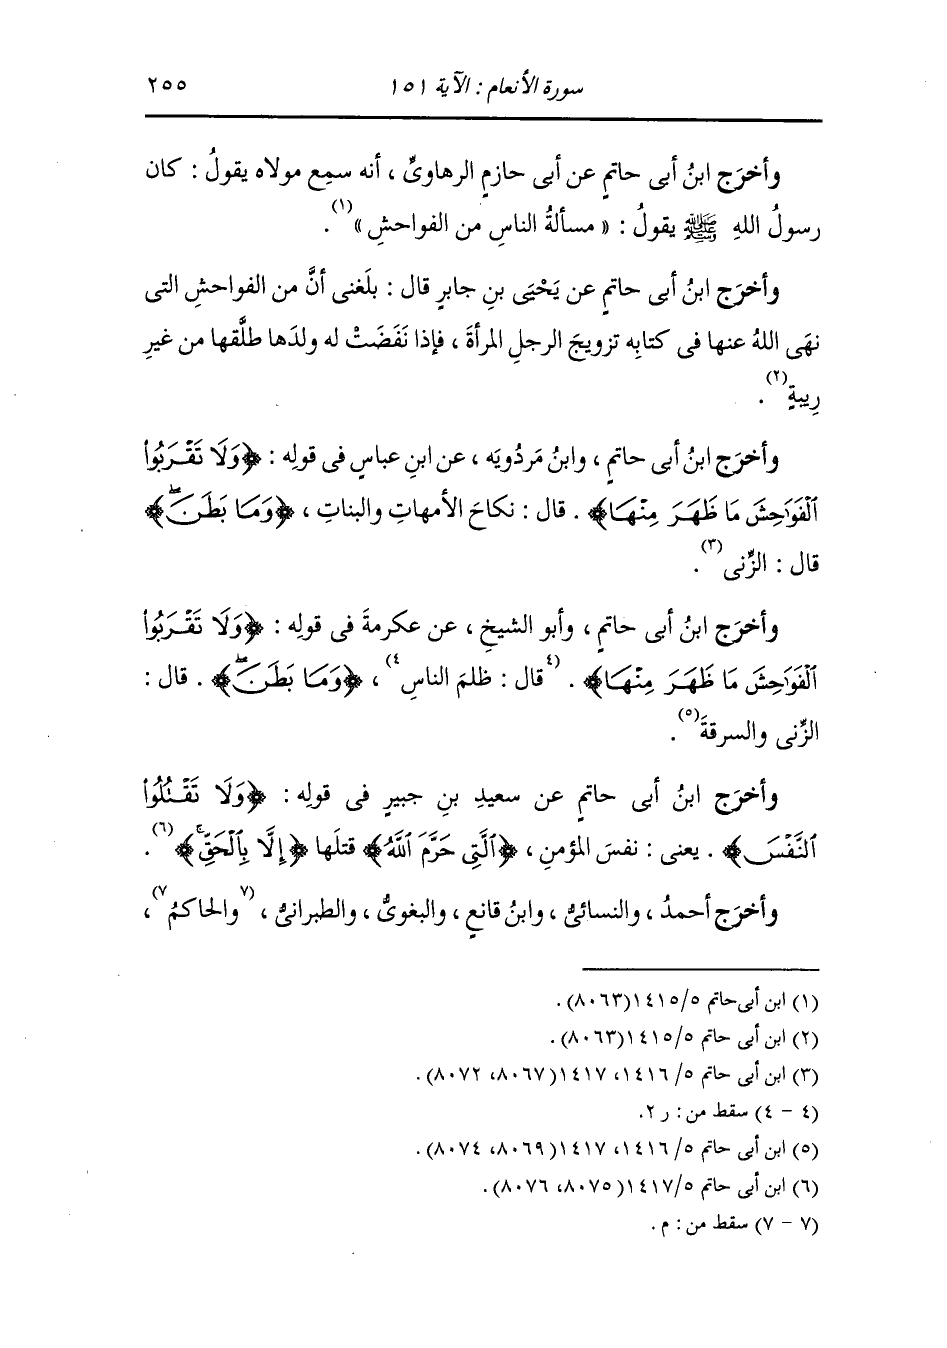 سورة الأنعام : الآية ١٥١ ٢٥٥
وأخرَج ابنُ أبى حاتمٍ عن أبى حازمٍ الرهاوىِّ ، أنه سمِع مولاه يقولُ : كان
رسولُ اللهِ ﷺ يقولُ : « مسألةُ الناسِ من الفواحشِ »(١) .
وأخرَج ابنُ أبى حاتمٍ عن يَحْيَى بنِ جابرٍ قال : بلَغنى أنَّ من الفواحشِ التى
نهَى اللهُ عنها فى كتابِه تزويجَ الرجلِ المرأةَ ، فإذا نَفَضَتْ له ولدَها طلَّقها من غيرِ
رِيبةٍ(٢) .
وأخرَج ابنُ أبى حاتمٍ ، وابنُ مَردُويَه ، عن ابنِ عباسٍ فى قولِه : ﴿وَلَا تَقْرَبُوا۟
ٱلْفَوَٰحِشَ مَا ظَهَرَ مِنْهَا﴾ . قال : نكاحَ الأمهاتِ والبناتِ ، ﴿وَمَا بَطَنَۖ﴾
قال : الزِّنى(٣) .
وأخرَج ابنُ أبى حاتمٍ ، وأبو الشيخِ ، عن عكرمةَ فى قولِه : ﴿وَلَا تَقْرَبُوا۟
ٱلْفَوَٰحِشَ مَا ظَهَرَ مِنْهَا﴾ . (٤قال : ظلمَ الناسِ٤) ، ﴿وَمَا بَطَنَۖ﴾ . قال :
الزِّنى والسرقةَ(٥) .
وأخرَج ابنُ أبى حاتمٍ عن سعيدِ بنِ جبيرٍ فى قولِه : ﴿وَلَا تَقْتُلُوا۟
ٱلنَّفْسَ﴾ . يعنى : نفسَ المؤمنِ ، ﴿ٱلَّتِى حَرَّمَ ٱللَّهُ﴾ قتلَها ﴿إِلَّا بِٱلْحَقِّۚ﴾(٦) .
وأخرَج أحمدُ ، والنسائىُّ ، وابنُ قانعٍ ، والبغوىُّ ، والطبرانىُّ ، (٧والحاكمُ٧) ،
(١) ابن أبى حاتم ٥/ ١٤١٥(٨٠٦٣) .
(٢) ابن أبى حاتم ٥/ ١٤١٥(٨٠٦٣) .
(٣) ابن أبى حاتم ٥/ ١٤١٦، ١٤١٧(٨٠٦٧، ٨٠٧٢) .
(٤ - ٤) سقط من : ر ٢.
(٥) ابن أبى حاتم ٥/ ١٤١٦، ١٤١٧(٨٠٦٩، ٨٠٧٤) .
(٦) ابن أبى حاتم ٥/ ١٤١٧(٨٠٧٥، ٨٠٧٦) .
(٧ - ٧) سقط من : م .